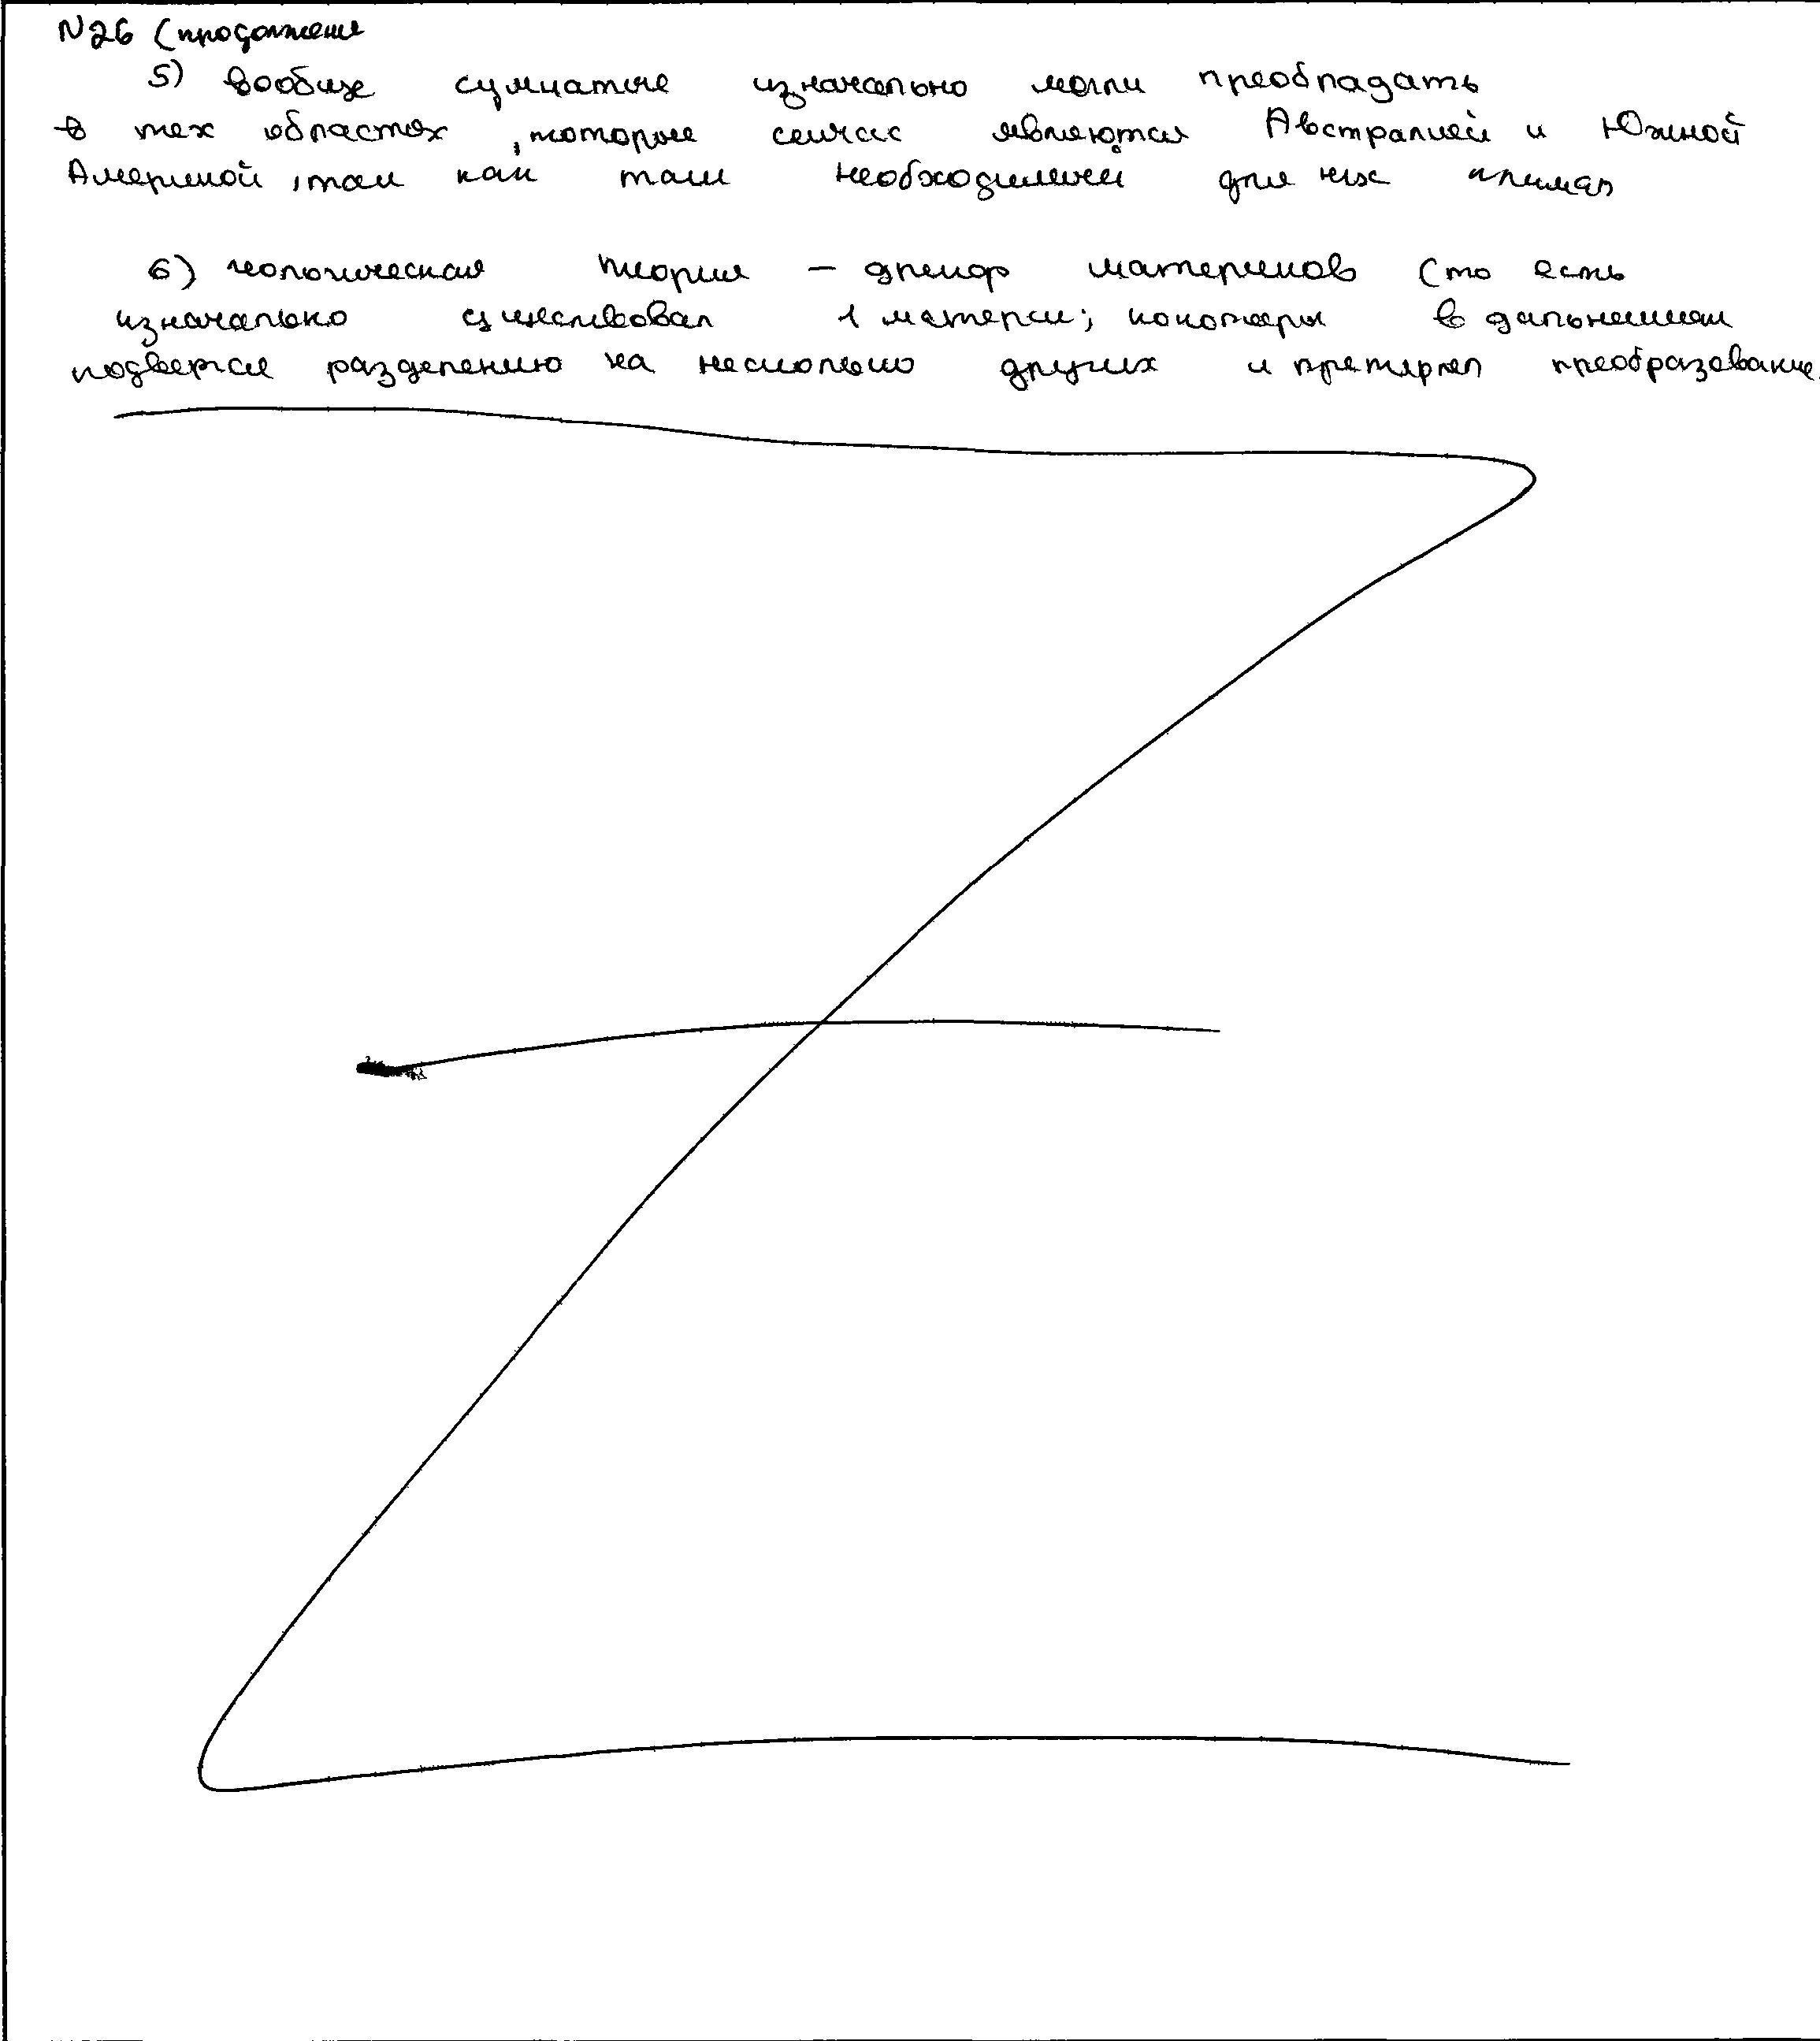 N26 (продолжение
5) вообще сумчатые изначально могли преобладать
в тех областях, которые сейчас являются Австралией и Южной
Америкой, так как там необходимый для них климат
6) геологическая теория – дрейф материков (то есть
изначально существовал 1 материк; который в дальнейшем
подвергся разделению на несколько других и претерпел преобразование.